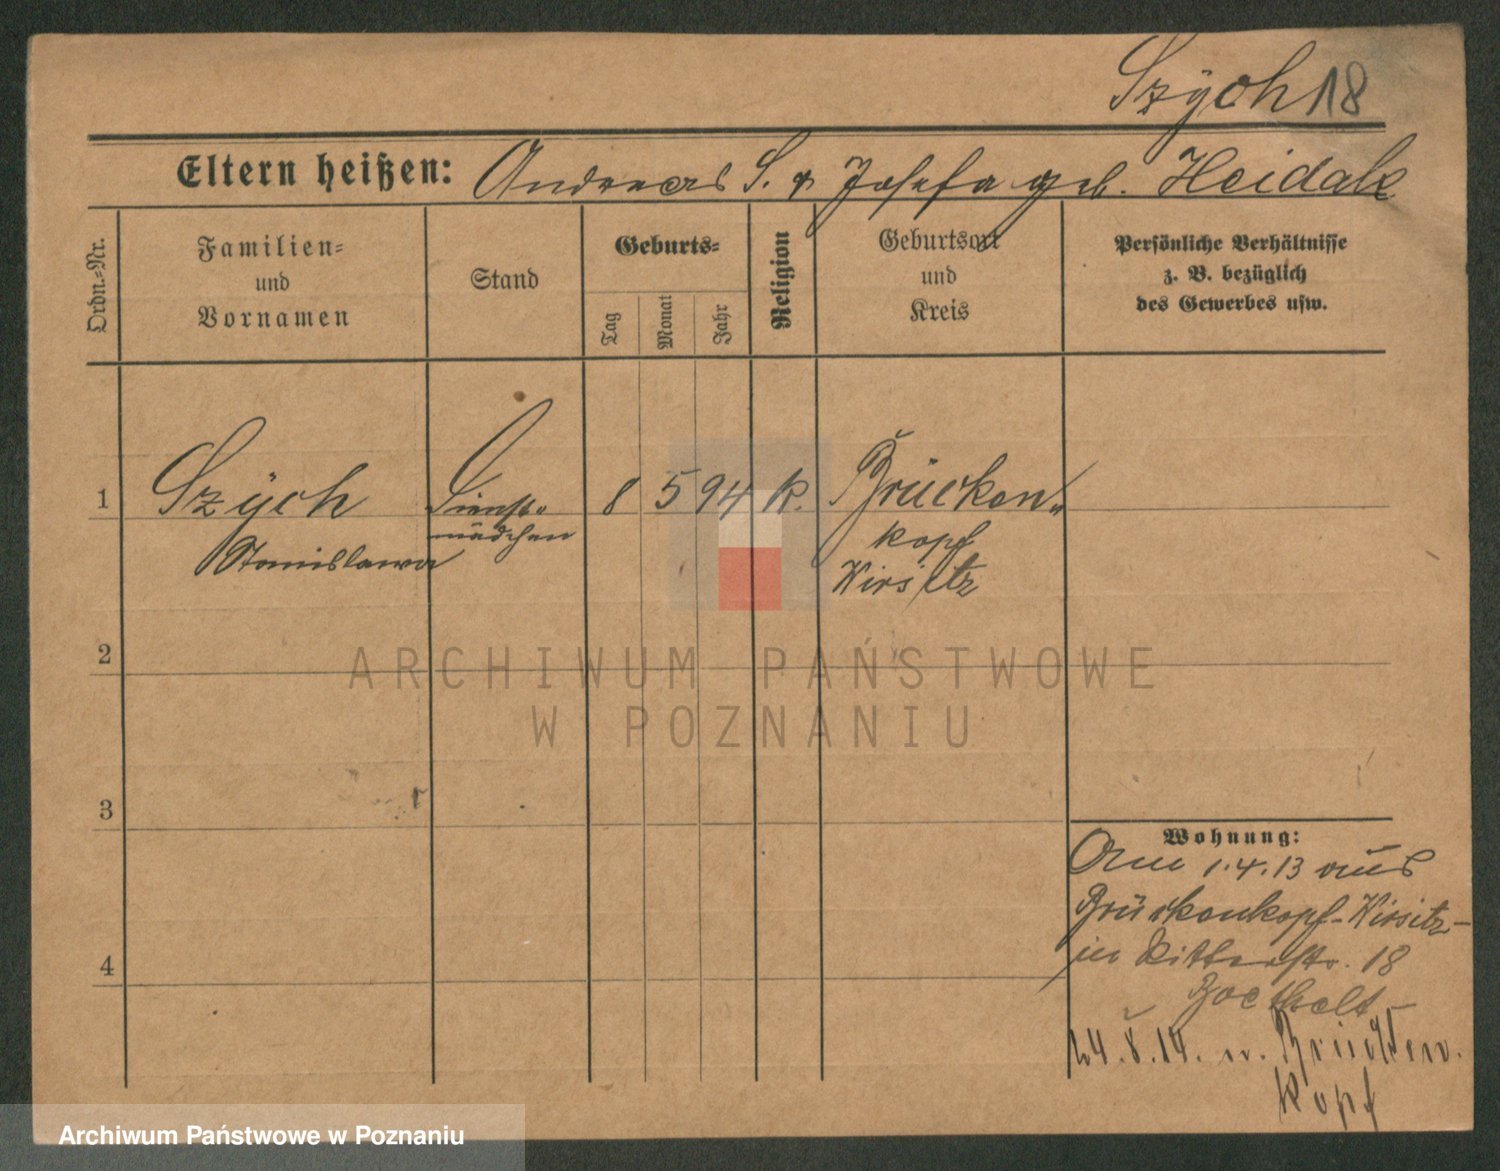 Szÿch 18
Eltern heißen: Andreas S. & Josefa geb. Heidak
Ordn.=Nr.
Familien=
und
Vornamen
Stand
Geburts=
Tag
Monat
Jahr
Religion
Geburtsort
und
Kreis
Persönliche Verhältnisse
z. B. bezüglich
des Gewerbes usw.
1
Szÿch
Stanislawa
Dienst=
mädchen
8 5 94 k.
Brücken=
kopf
Wirsitz
2
ARCHIWUM PAŃSTWOWE
W POZNANIU
3
Wohnung:
1.4.13 aus
Brückenkopf-Wirsitz-
in Ritterstr. 18
4
24.8.14. n. Brücken
kopf
Archiwum Państwowe w Poznaniu